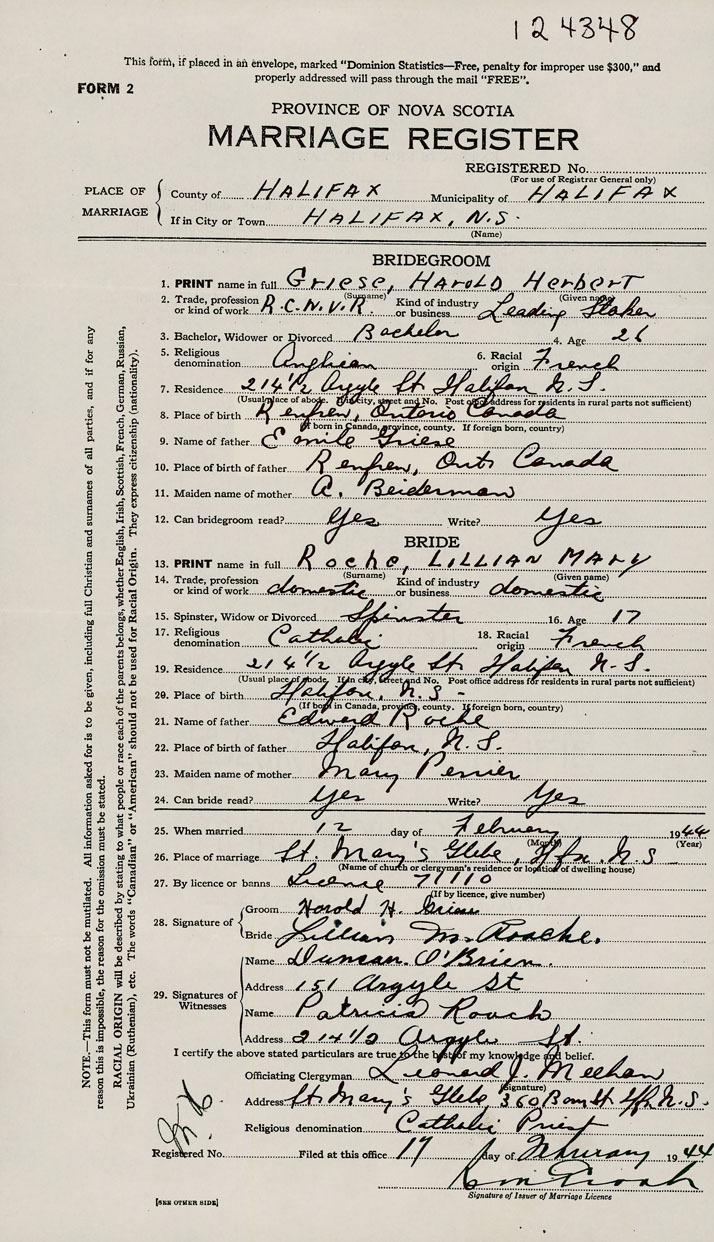 124348
This form, if placed in an envelope, marked "Dominion Statistics—Free, penalty for improper use $300," and
properly addressed will pass through the mail "FREE".
FORM 2
PROVINCE OF NOVA SCOTIA
MARRIAGE REGISTER
REGISTERED No.
(For use of Registrar General only)
PLACE OF MARRIAGE
County of HALIFAX Municipality of HALIFAX
If in City or Town HALIFAX, N.S.
(Name)
BRIDEGROOM
1. PRINT name in full Griese, HAROLD HerberT
(Surname) (Given name)
2. Trade, profession or kind of work R.C.N.V.R. Kind of industry or business Leading Stoker
3. Bachelor, Widower or Divorced Bachelor 4. Age 26
5. Religious denomination Anglican 6. Racial origin French
7. Residence 214½ Argyle St Halifax N.S.
(Usual place of abode. If in city, street and No. Post office address for residents in rural parts not sufficient)
8. Place of birth Renfrew, Ontario Canada
(If born in Canada, province, county. If foreign born, country)
9. Name of father Emile Griese
10. Place of birth of father Renfrew, Ont. Canada
11. Maiden name of mother A. Beiderman
12. Can bridegroom read? Yes Write? Yes
BRIDE
13. PRINT name in full Roche, LILLIAN MARY
(Surname) (Given name)
14. Trade, profession or kind of work domestic Kind of industry or business domestic
15. Spinster, Widow or Divorced Spinster 16. Age 17
17. Religious denomination Catholic 18. Racial origin French
19. Residence 214½ Argyle St. Halifax N.S.
(Usual place of abode. If in city, street and No. Post office address for residents in rural parts not sufficient)
20. Place of birth Halifax, N.S.
(If born in Canada, province, county. If foreign born, country)
21. Name of father Edward Roche
22. Place of birth of father Halifax, N.S.
23. Maiden name of mother Mary Perrier
24. Can bride read? Yes Write? Yes
25. When married 12 day of February 1944
(Month) (Year)
26. Place of marriage St. Mary's Glebe, Hfx. N.S
(Name of church or clergyman's residence or location of dwelling house)
27. By licence or banns Licence 71110
(If by licence, give number)
28. Signature of
Groom Harold H. Griese
Bride Lillian M. Roache.
29. Signatures of Witnesses
Name Duncan O'Brien.
Address 151 Argyle St
Name Patricia Roach
Address 214½ Argyle St.
I certify the above stated particulars are true to the best of my knowledge and belief.
Officiating Clergyman Leonard J. Meehan
(Signature)
Address St. Mary's Glebe, 360 Barr. St. Hfx N.S.
Religious denomination Catholic Priest
Registered No. Filed at this office 17 day of February 1944
Signature of Issuer of Marriage Licence
[SEE OTHER SIDE]
NOTE.—This form must not be mutilated. All information asked for is to be given, including full Christian and surnames of all parties, and if for any
reason this is impossible, the reason for the omission must be stated.
RACIAL ORIGIN will be described by stating to what people or race each of the parents belongs, whether English, Irish, Scottish, French, German, Russian,
Ukrainian (Ruthenian), etc. The words "Canadian" or "American" should not be used for Racial Origin. They express citizenship (nationality).